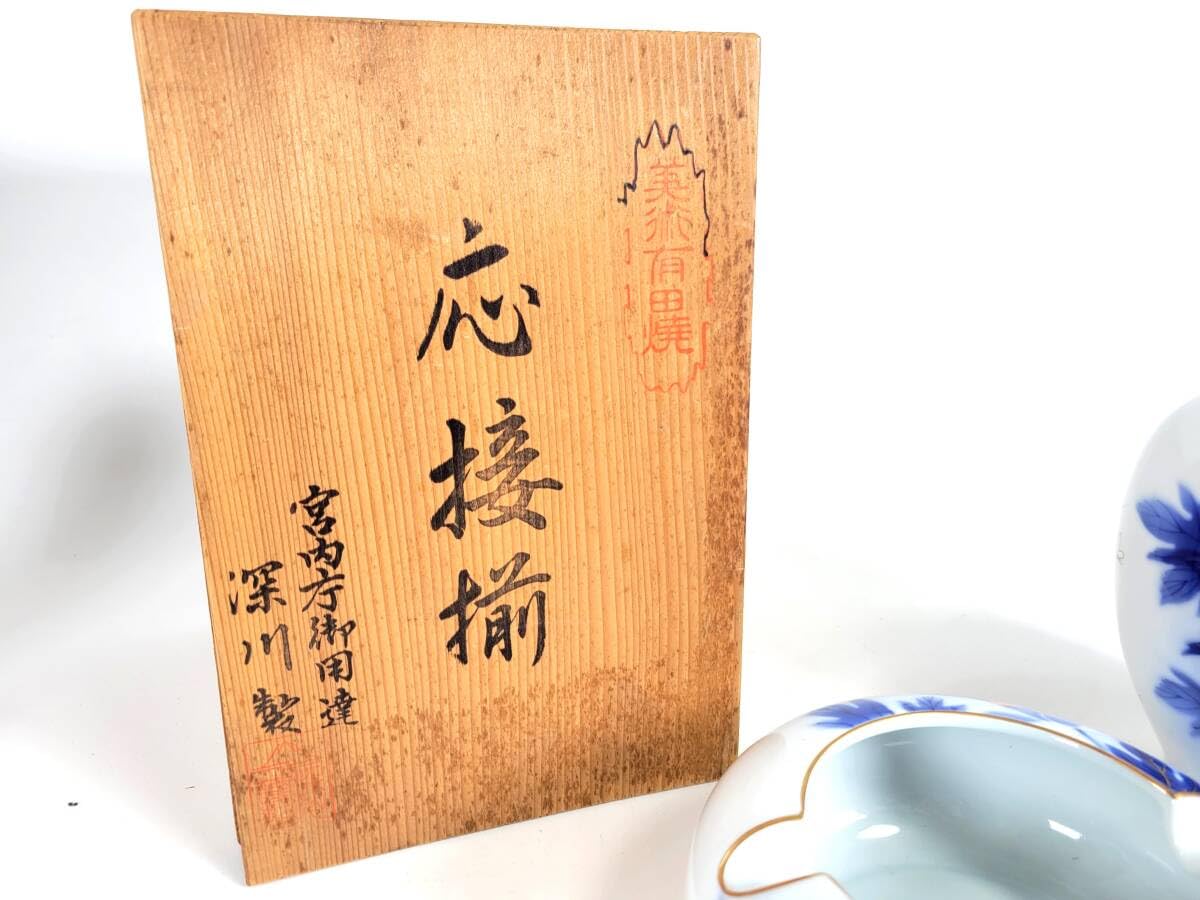 美術有田焼
応接揃
宮内庁御用達
深川製